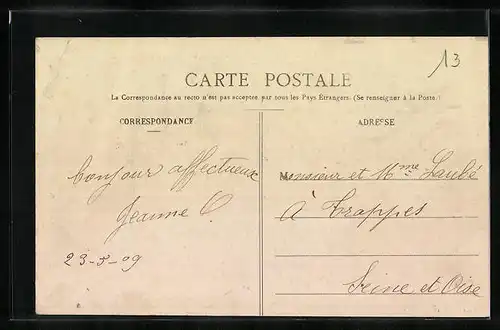 13
CARTE POSTALE
La Correspondance au recto n'est pas acceptée par tous les Pays Étrangers. (Se renseigner à la Poste.)
CORRESPONDANCE
ADRESSE
bonjour affectueux
Jeanne C.
23-5-09
Monsieur et Mme Laubé
à Trappes
Seine et Oise